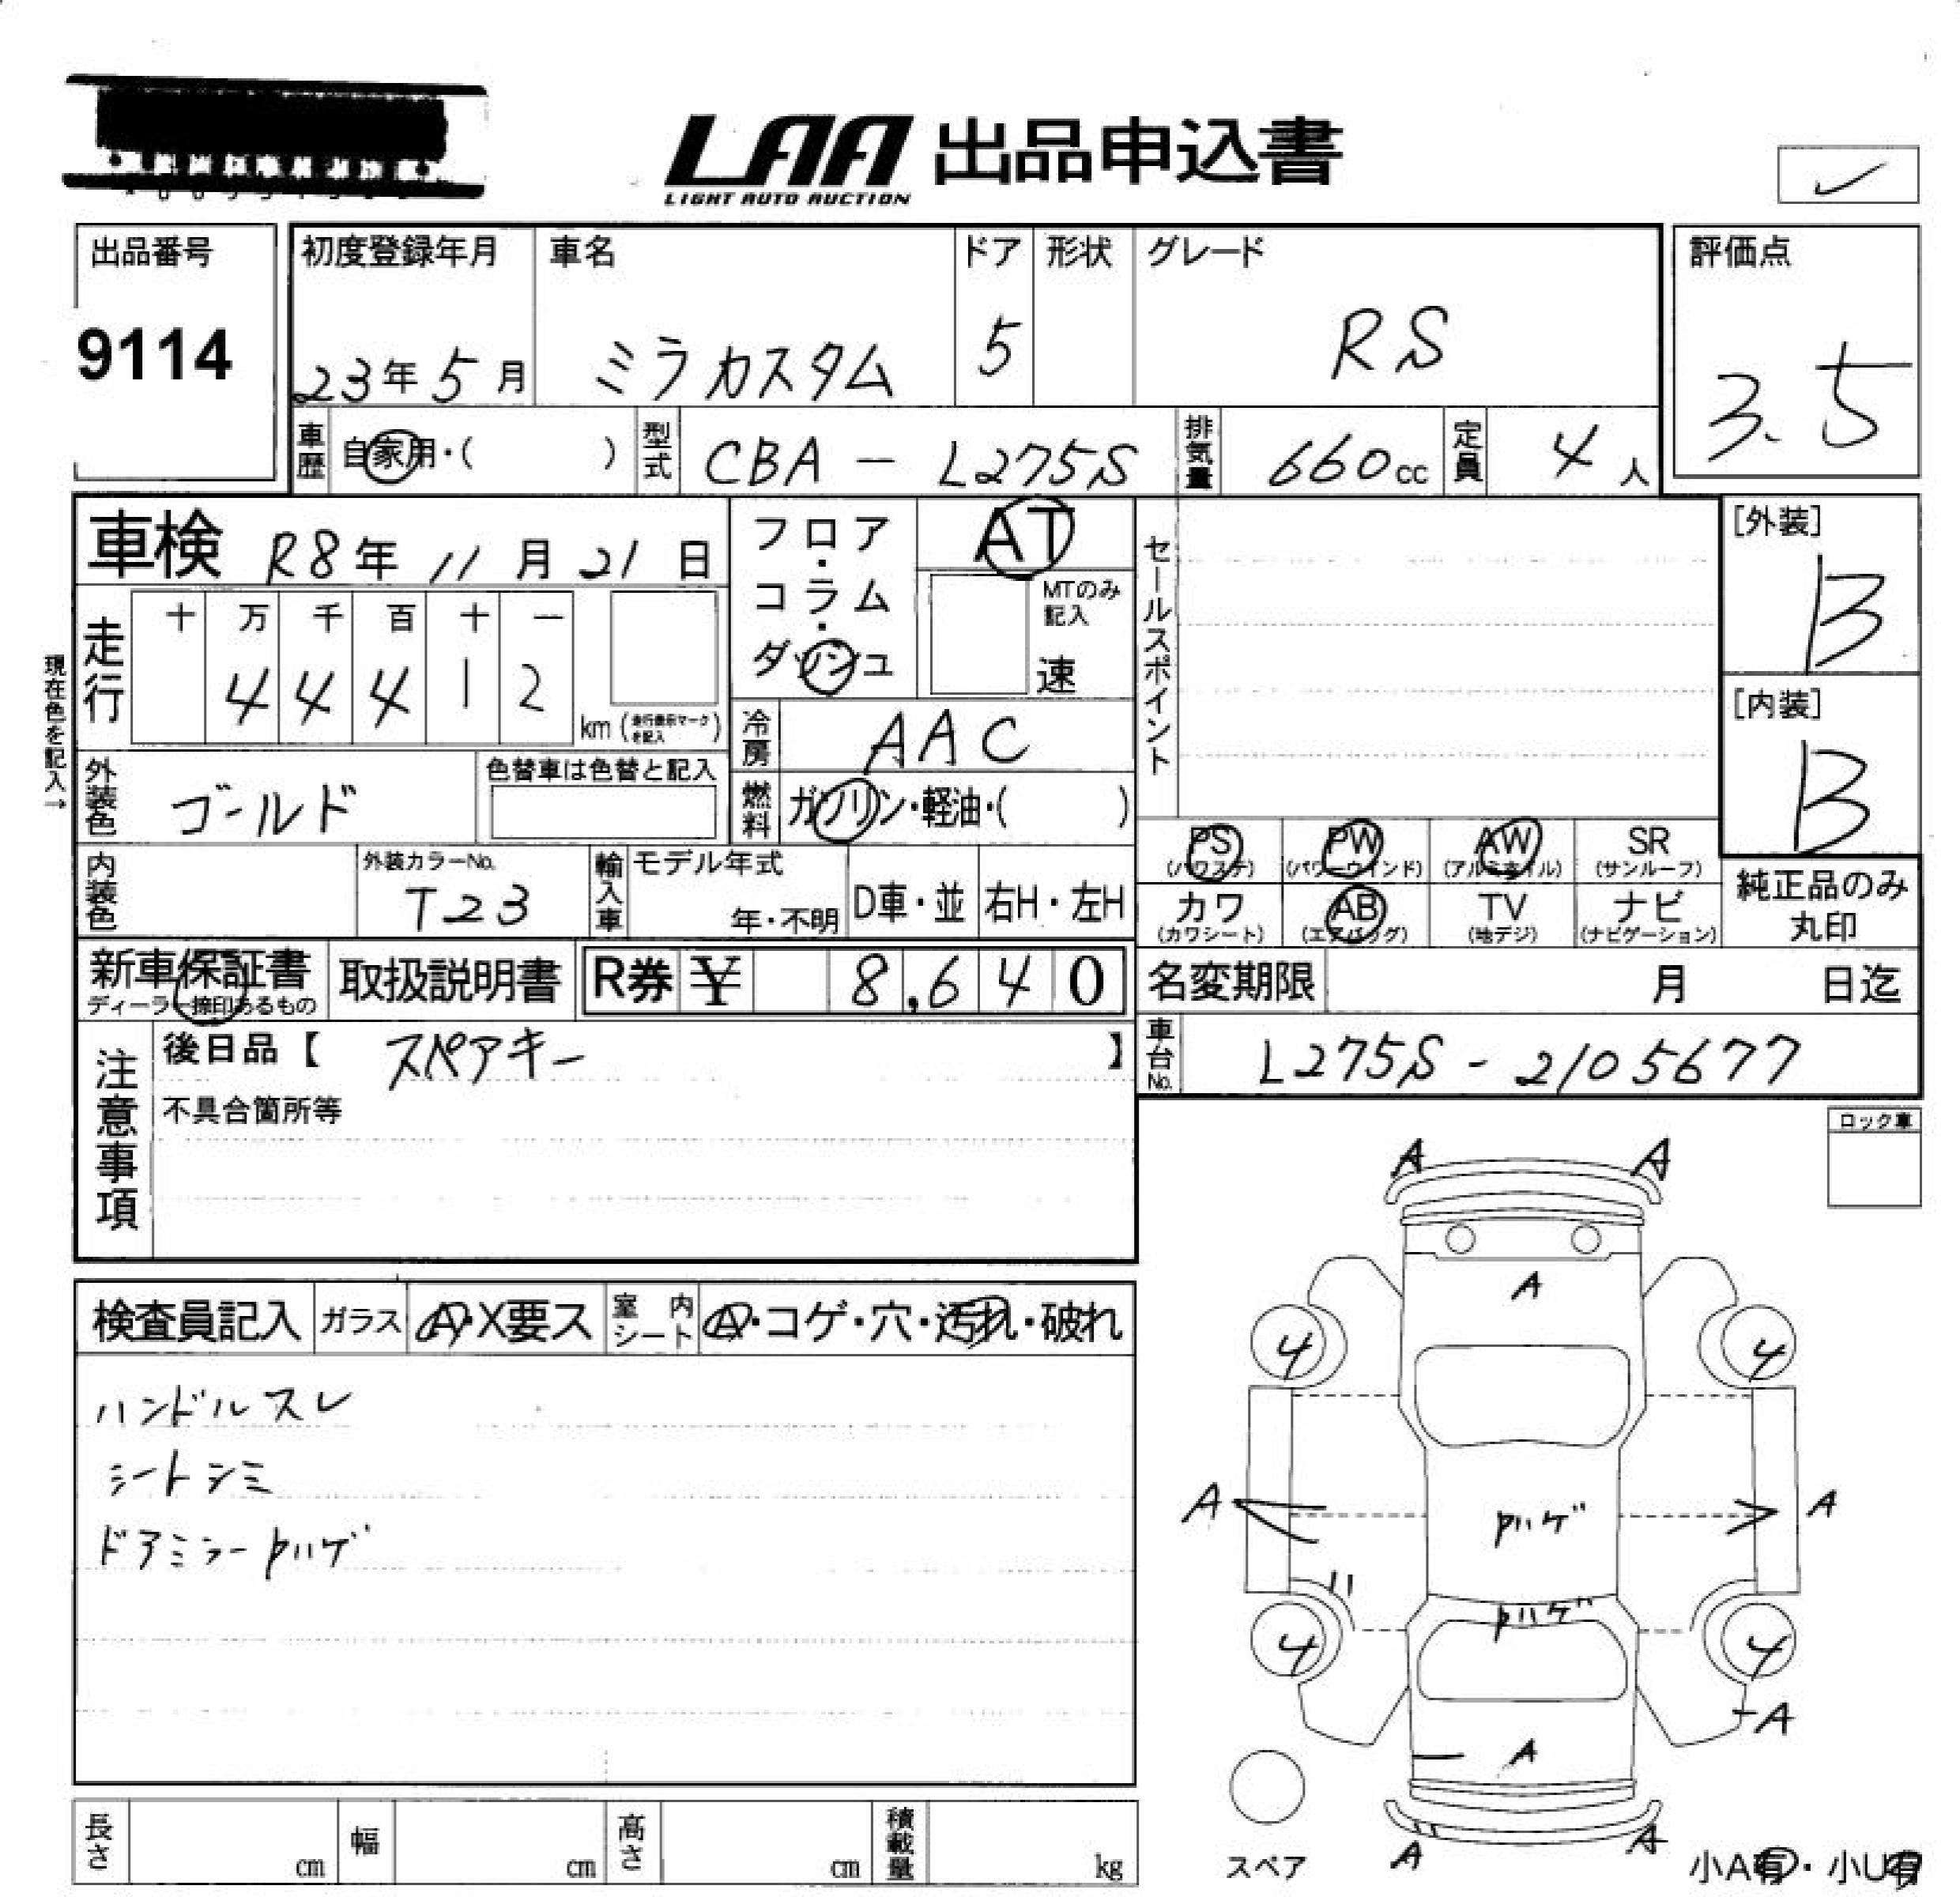 LAA 出品申込書
LIGHT AUTO AUCTION
出品番号
9114
初度登録年月 車名 ドア 形状 グレード
23年5月 ミラカスタム 5 RS
評価点
3.5
車歴 自家用・( ) 型式 CBA-L275S 排気量 660cc 定員 4人
車検 R8年11月21日
フロア・コラム・ダッシュ
AT
MTのみ記入
速
セールスポイント
[外装]
B
[内装]
B
現在色を記入→
走行 十 万 千 百 十 一
4 4 4 1 2
km (走行表示マークを記入)
冷房 AAC
外装色 ゴールド
色替車は色替と記入
燃料 ガソリン・軽油・( )
PS PW AW SR
(パワステ) (パワーウインド) (アルミホイル) (サンルーフ)
カワ AB TV ナビ
(カワシート) (エアバッグ) (地デジ) (ナビゲーション)
純正品のみ
丸印
内装色 外装カラーNo. T23
輸入車 モデル年式 年・不明 D車・並 右H・左H
新車保証書
ディーラー捺印あるもの
取扱説明書
R券 ¥ 8,640
名変期限 月 日迄
車台No. L275S-2105677
注意事項
後日品【 スペアキー 】
不具合箇所等
ロック車
検査員記入 ガラス A・X要ス 室内シート A・コゲ・穴・汚れ・破れ
ハンドルスレ
シートシミ
ドアミラーPハゲ
A A
A
4 4
A A
Pハゲ
Pハゲ
4 4
A
A
A A
スペア
小A有・小U有
長さ cm 幅 cm 高さ cm 積載量 kg